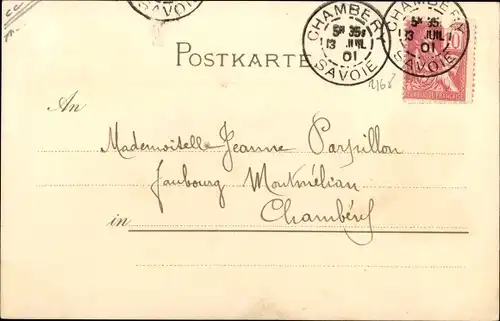 SAVOIE
CHAMBÉRY
5ᴱ 35
13 JUIL
01
SAVOIE
CHAMBÉRY
5ᴱ 35
13 JUIL
01
SAVOIE
10
POSTKARTE
2168
An
Mademoiselle Jeanne Parpillon
Faubourg Montmélian
in Chambéry